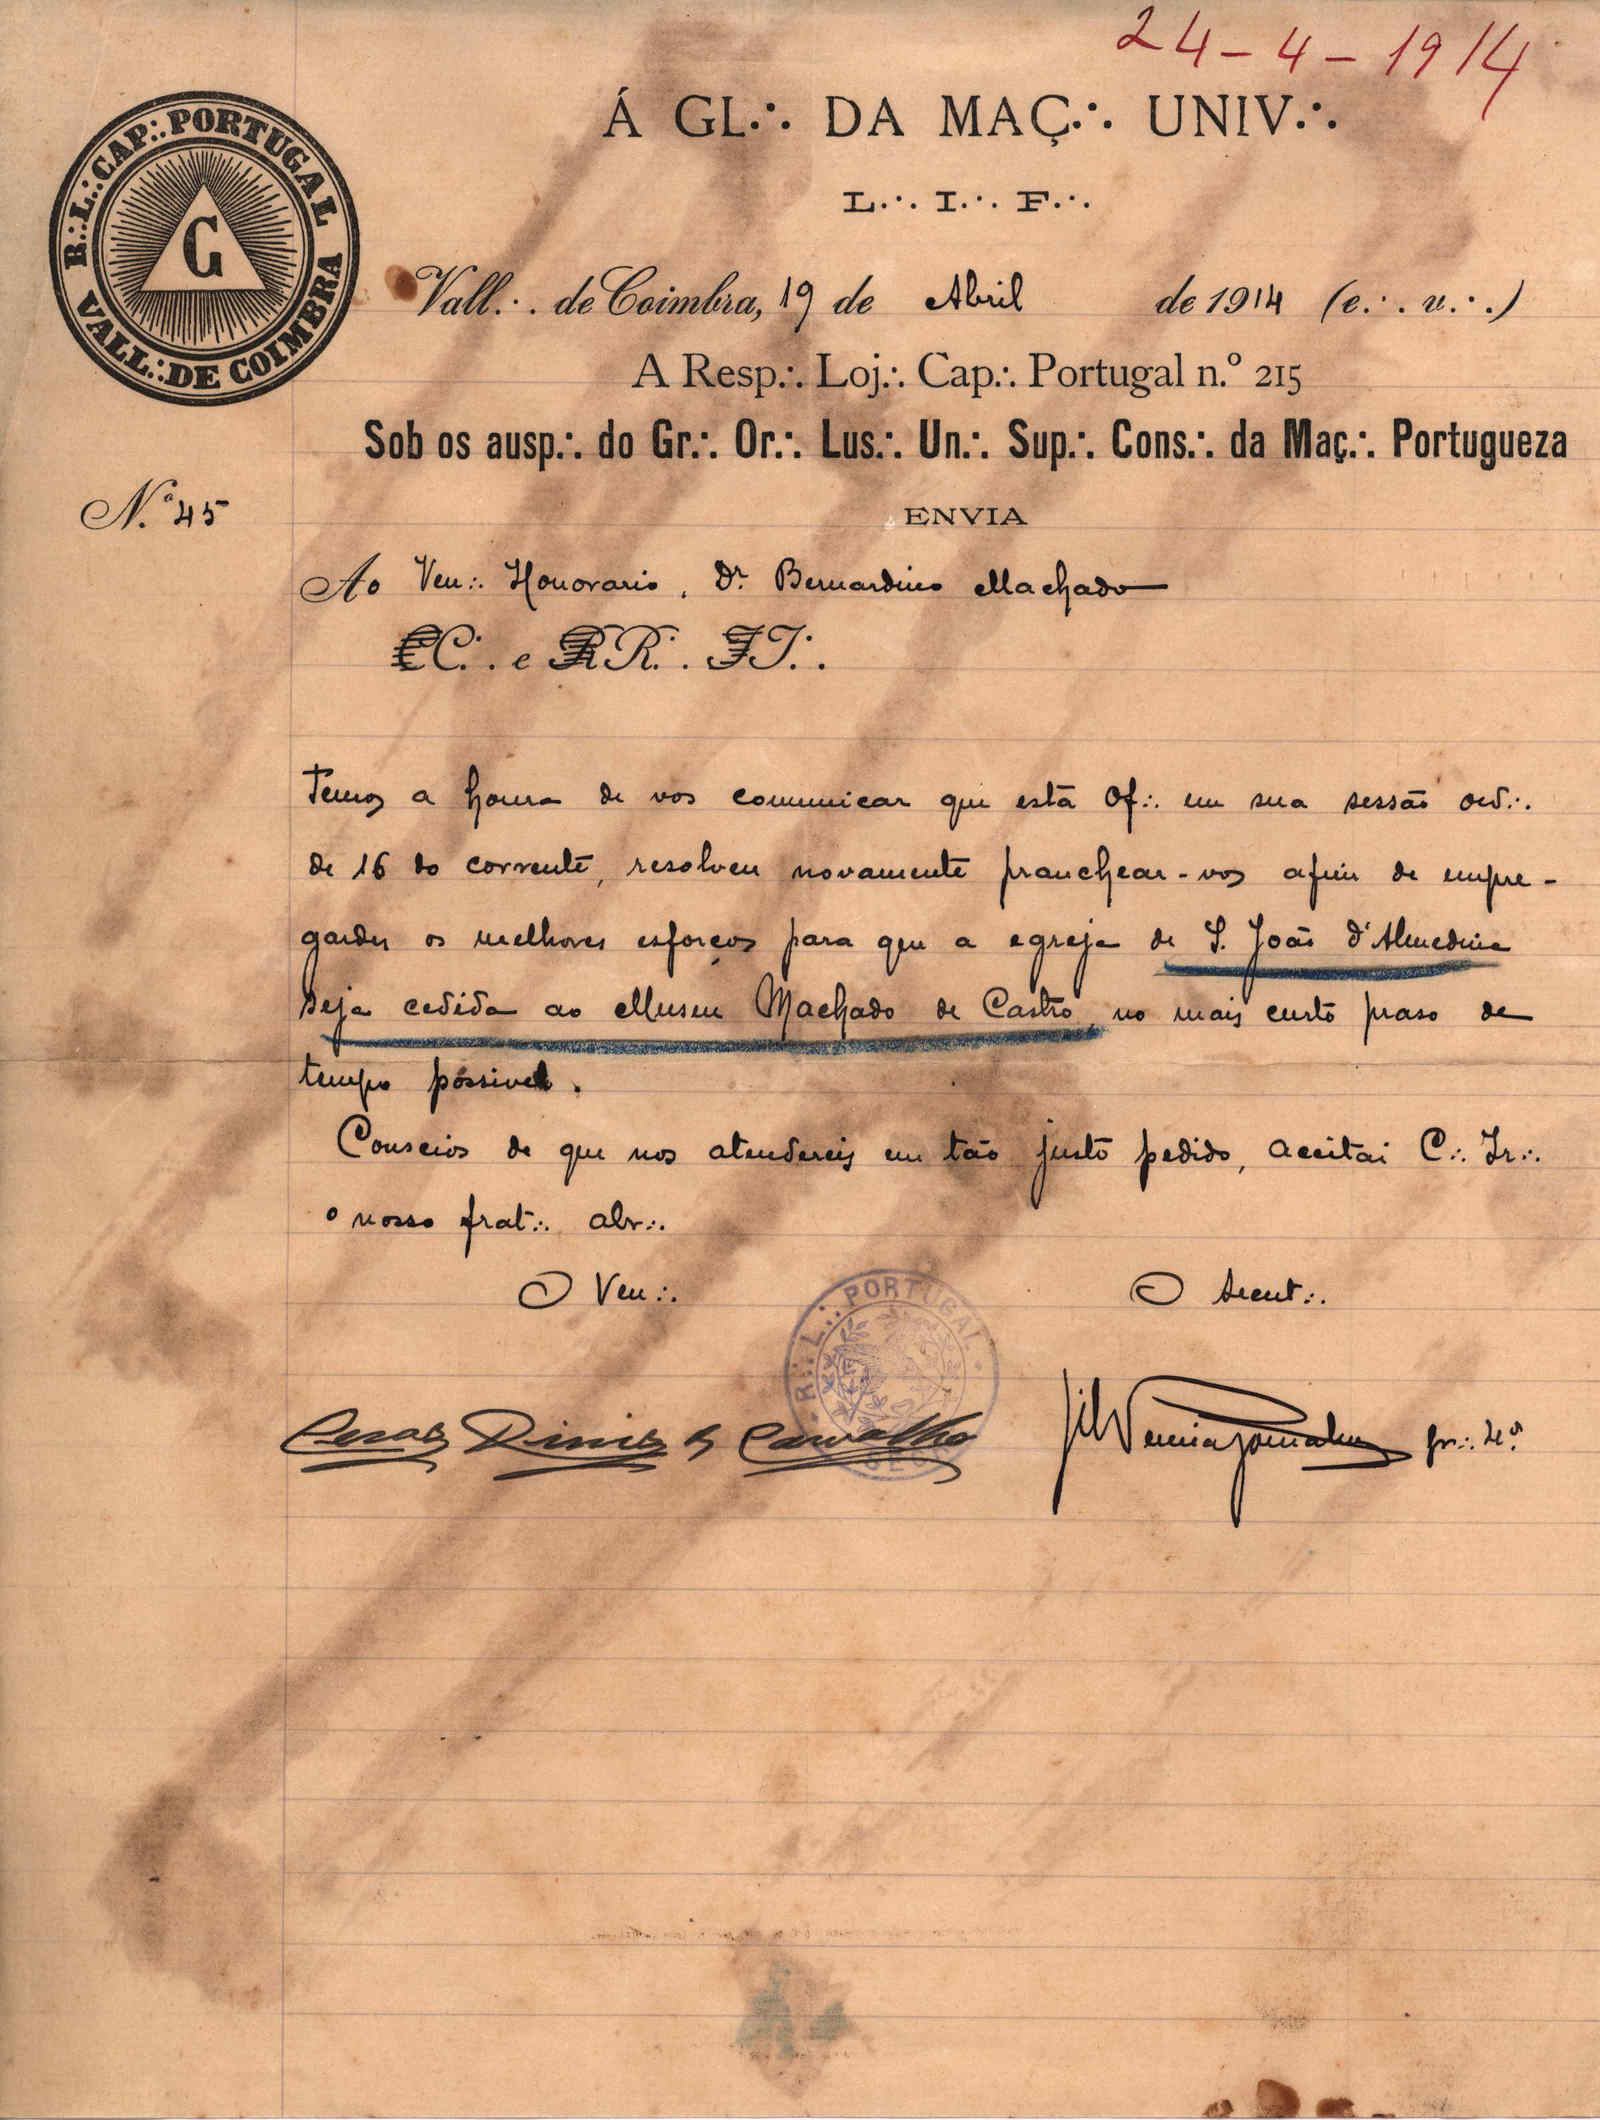 24-4-1914
R∴L∴CAP∴PORTUGAL
VALL∴DE COIMBRA
G
Á GL∴ DA MAÇ∴ UNIV∴
L∴ I∴ F∴
Vall∴ de Coimbra, 19 de Abril de 1914 (e∴ v∴)
A Resp∴ Loj∴ Cap∴ Portugal n.º 215
Sob os ausp∴ do Gr∴ Or∴ Lus∴ Un∴ Sup∴ Cons∴ da Maç∴ Portugueza
N.º 45
ENVIA
Ao Ven∴ Honorario, Dr Bernardino Machado
C∴ e R∴ I∴
Temos a honra de vos communicar que esta Of∴ em sua sessão ord∴
de 16 do corrente, resolveu novamente pranchear-vos afim de empre-
gardes os melhores esforços para que a egreja de S. João d'Almedina
seja cedida ao Museu Machado de Castro, no mais curto praso de
tempo possivel.
Conscios de que nos atendereis em tão justo pedido, aceitai C∴ Ir∴
o nosso frat∴ abr∴
O Ven∴
O Secret∴
R∴ L∴ PORTUGAL
Cesar Diniz de Carvalho
gr∴ 4º